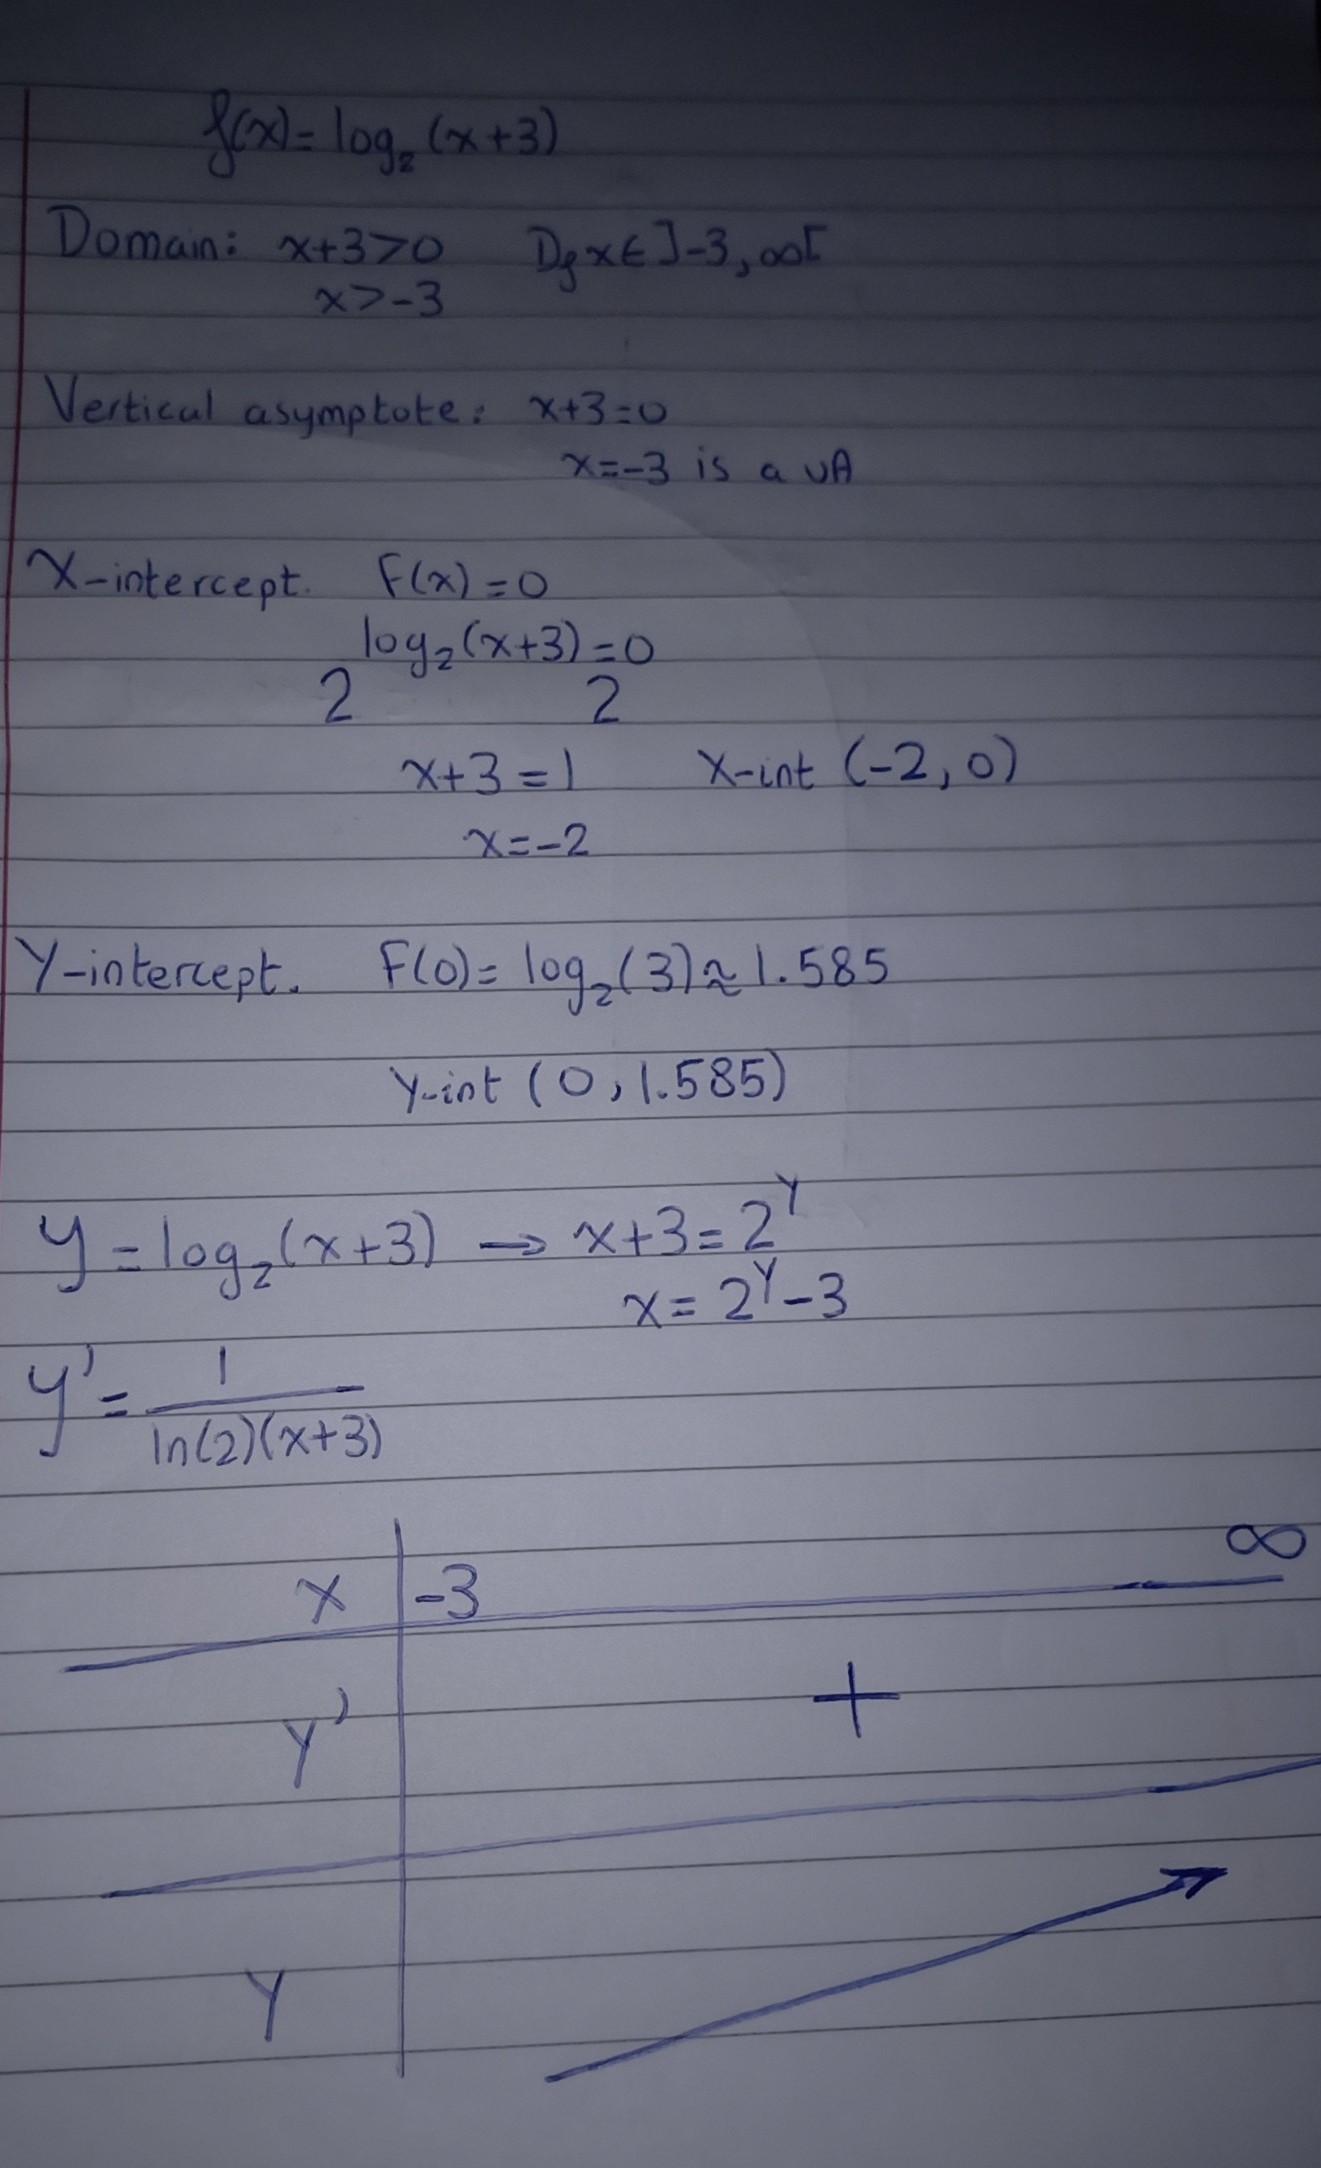 f(x)=log₂(x+3)
Domain: x+3>0 Df x∈]-3,∞[
x>-3
Vertical asymptote: x+3=0
x=-3 is a VA
X-intercept. F(x)=0
log₂(x+3)=0
2 2
x+3=1 X-int (-2,0)
x=-2
Y-intercept. F(0)=log₂(3)≈1.585
Y-int (0,1.585)
y=log₂(x+3) → x+3=2^Y
x=2^Y-3
y'=1/ln(2)(x+3)
x -3 ∞
Y' +
Y